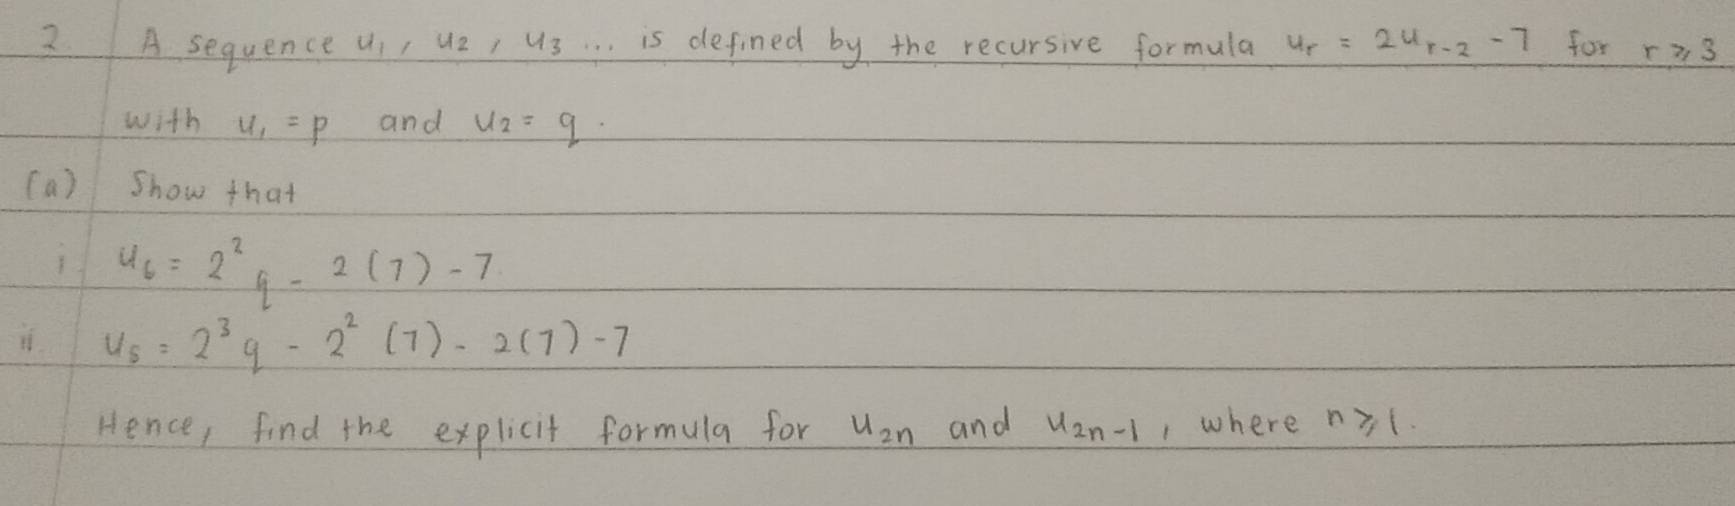 2 A sequence u₁, u₂, u₃ ... is defined by the recursive formula uᵣ = 2uᵣ₋₂ - 7 for r ⩾ 3
with u₁ = p and u₂ = q.
(a) Show that
i u₆ = 2² q - 2(7) - 7
ii. u₈ = 2³ q - 2² (7) - 2(7) - 7
Hence, find the explicit formula for u₂ₙ and u₂ₙ₋₁, where n ⩾ 1.